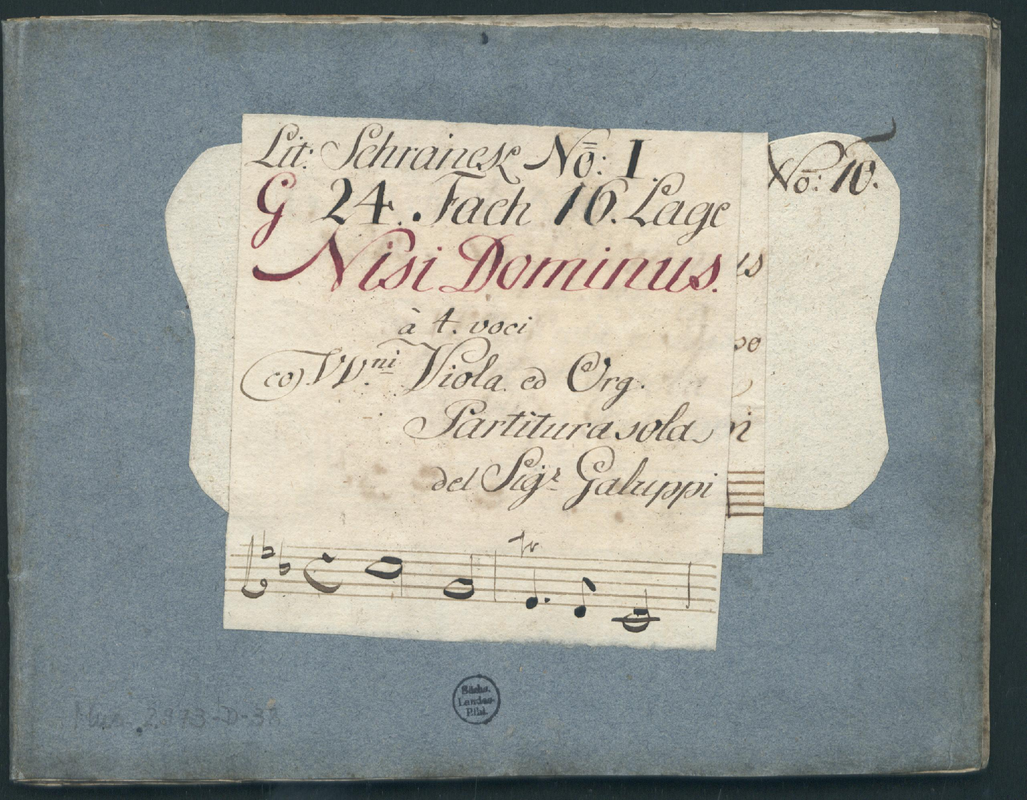 Lit: Schranck No: I.
G 24. Fach 16. Lage
Nisi Dominus.
à 4. voci
co VV.ni Viola ed Org.
Partitura sola
del Sigr Galuppi
No: 10.
us
vo
ni
Sächs.
Landes-
Bibl.
Mus. 2973-D-38